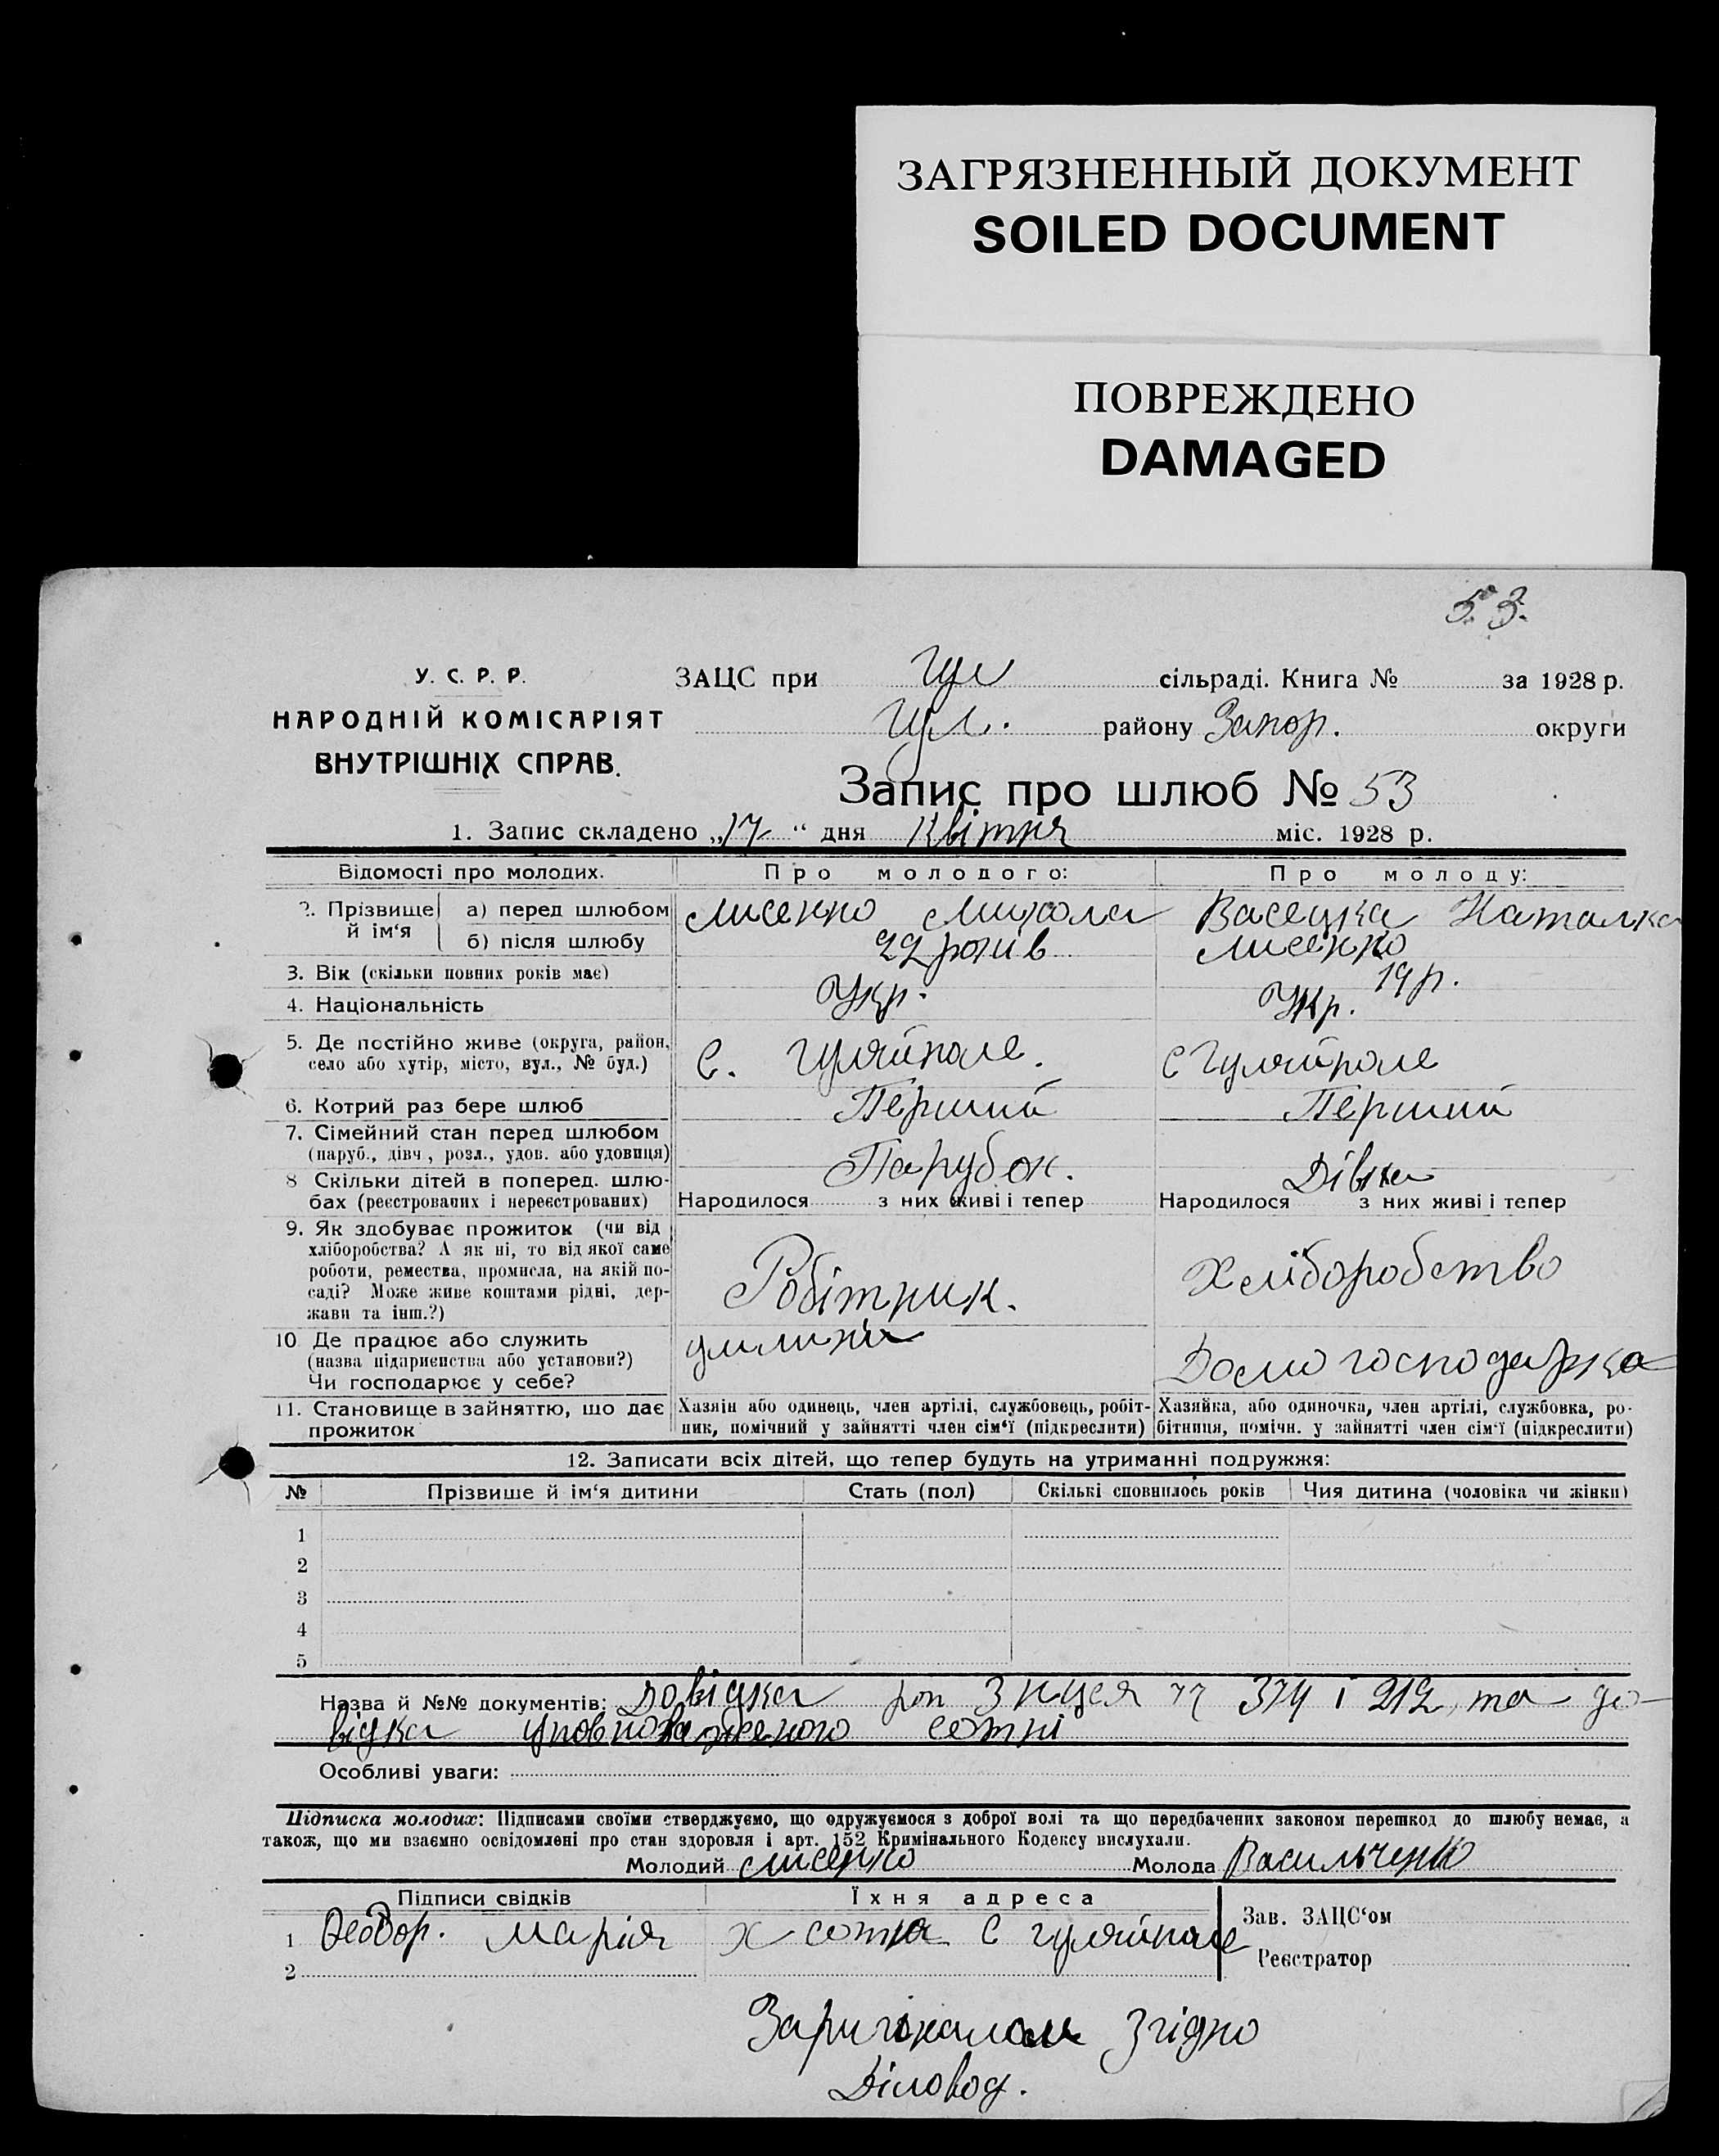 ЗАГРЯЗНЕННЫЙ ДОКУМЕНТ
SOILED DOCUMENT
ПОВРЕЖДЕНО
DAMAGED
53.
У. С. Р. Р.
НАРОДНІЙ КОМІСАРІЯТ
ВНУТРІШНІХ СПРАВ.
ЗАЦС при Гул сільраді. Книга № за 1928 р.
Гул. району Запор. округи
Запис про шлюб № 53
1. Запис складено „17“ дня Квітня міс. 1928 р.
Відомості про молодих. Про молодого: Про молоду:
2. Прізвище й ім‘я а) перед шлюбом Лисенко Микола Васецка Наталка
б) після шлюбу Лисенко
3. Вік (скільки повних років має) 22 років 19 р.
4. Національність Укр. Укр.
5. Де постійно живе (округа, район, село або хутір, місто, вул., № буд.) С. Гуляйполе. С Гуляйполе
6. Котрий раз бере шлюб Перший Перший
7. Сімейний стан перед шлюбом (паруб., дівч., розл., удов. або удовиця) Парубок. Дівка
8 Скільки дітей в поперед. шлюбах (реєстрованих і нереєстрованих) Народилося з них живі і тепер Народилося з них живі і тепер
9. Як здобуває прожиток (чи від хліборобства? А як ні, то від якої саме роботи, ремества, промисла, на якій посаді? Може живе коштами рідні, держави та інш.?) Робітник. Хліборобство
10 Де працює або служить (назва підприєпства або установи?) Чи господарює у себе? Домогосподарка
11. Становище в зайняттю, що дає прожиток Хазяін або одинець, член артілі, службовець, робітник, помічний у зайнятті член сім‘ї (підкреслити) Хазяйка, або одиночка, член артілі, службовка, робітниця, помічн. у зайнятті член сім‘ї (підкреслити)
12. Записати всіх дітей, що тепер будуть на утриманні подружжя:
№ Прізвише й ім‘я дитини Стать (пол) Скількі сповнилось років Чия дитина (чоловіка чи жінки)
1
2
3
4
5
Назва й №№ документів: Довідка 374 і 212, та до-
відка уповноваженого сотні
Особливі уваги:
Підписка молодих: Підписами своїми стверджуємо, що одружуємося з доброї волі та що передбачених законом перешкод до шлюбу немає, а
також, що ми взаємно освідомлені про стан здоровля і арт. 152 Кримінального Кодексу вислухали.
Молодий Лисенко Молода Васильченко
Підписи свідків Їхня адреса
Зав. ЗАЦС‘ом
1 Феодор. Марія Х сотня С Гуляйполе
Реєстратор
2
Заригіналом Згідно
Діловод.